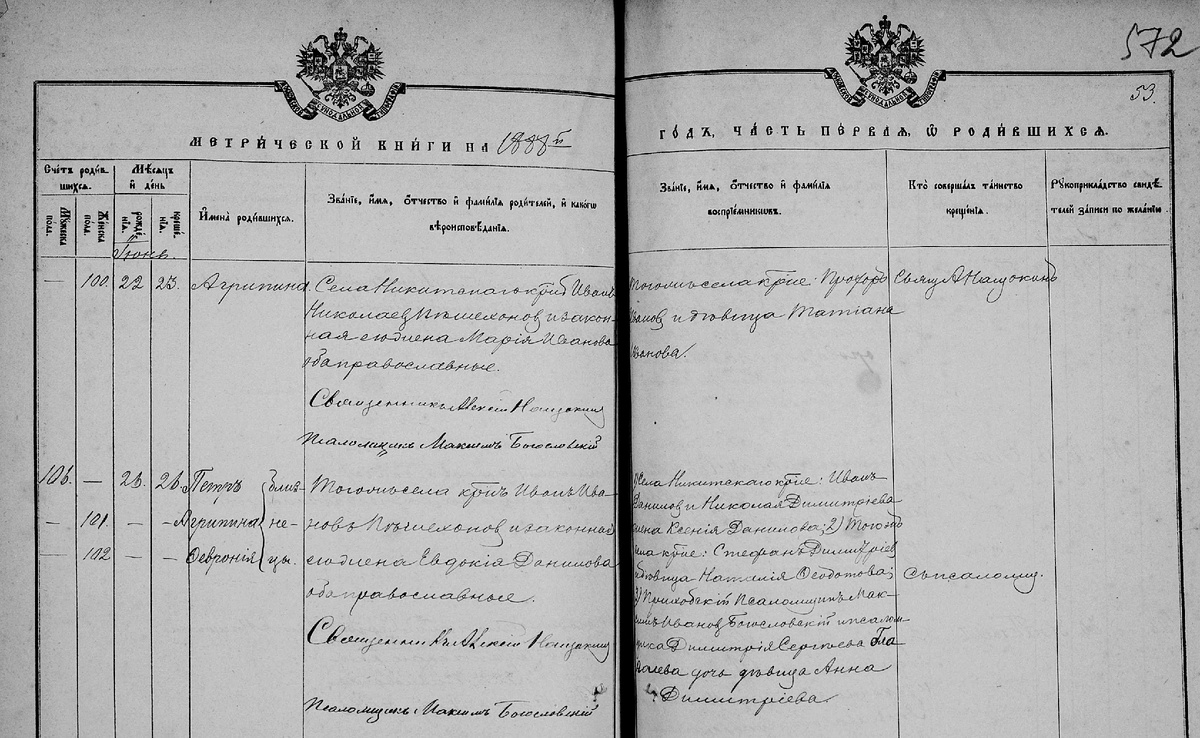 572
53.
МЕТРИ́ЧЕСКОЙ КНИ́ГИ НА 1888й
ГО́ДЪ, ЧА́СТЬ ПЕ́РВАЯ, Ѿ РОДИ́ВШИХСЯ.
Счетъ роди́вшихся.
Мѣ́сяцъ и де́нь
Му́жеска пола.
Же́нска пола.
рожде́нія.
креще́нія.
И́мена роди́вшихся.
Зва́ніе, и́мя, ѻ́тчество и фами́лія роди́телей, и како́гѡ
вѣроисповѣ́данія.
Зва́ніе, и́мя, ѻ́тчество и фами́лія
воспріе́мниковъ.
Кто̀ соверша́лъ та́инство
креще́нія.
Рꙋкоприкла́дство свидѣ́телей за́писи по жела́нію.
Іюнь.
— 100. 22 23. Агрипина.
Села Никитскаго крѣс Иванъ
Николаев Пѣшехонов и закон-
ная его жена Марія Иванова
оба православные.
Священникъ Алексій Нащокинъ
Псаломщикъ Максимъ Богословскій
Тогоже села крѣс: Прохоръ
Иванов и дѣвица Татіана
Иванова.
Свящ А Нащокинъ
106. — 26. 26. Петръ
— 101. — — Агрипина
— 102 — — Февронія
близ-
не-
цы.
Тогоже села крѣс Иванъ Ива-
новъ Пѣшехонов и законная
его жена Евдокія Данилова
оба православные.
Священникъ Алексій Нащокинъ
Псаломщикъ Максимъ Богословскій
1) Села Никитскаго крѣс: Иванъ
Данилов и Николая Димитріева
жена Ксенія Данилова; 2) Тогоже
села крѣс: Стефанъ Димитріев
и дѣвица Наталія Ѳеодотова;
3) Приходскій Псаломщикъ Мак-
симъ Иванов Богословскій и псалом-
щика Димитрія Сергѣева
дочь дѣвица Анна
Димитріева.
Съ псаломщ.